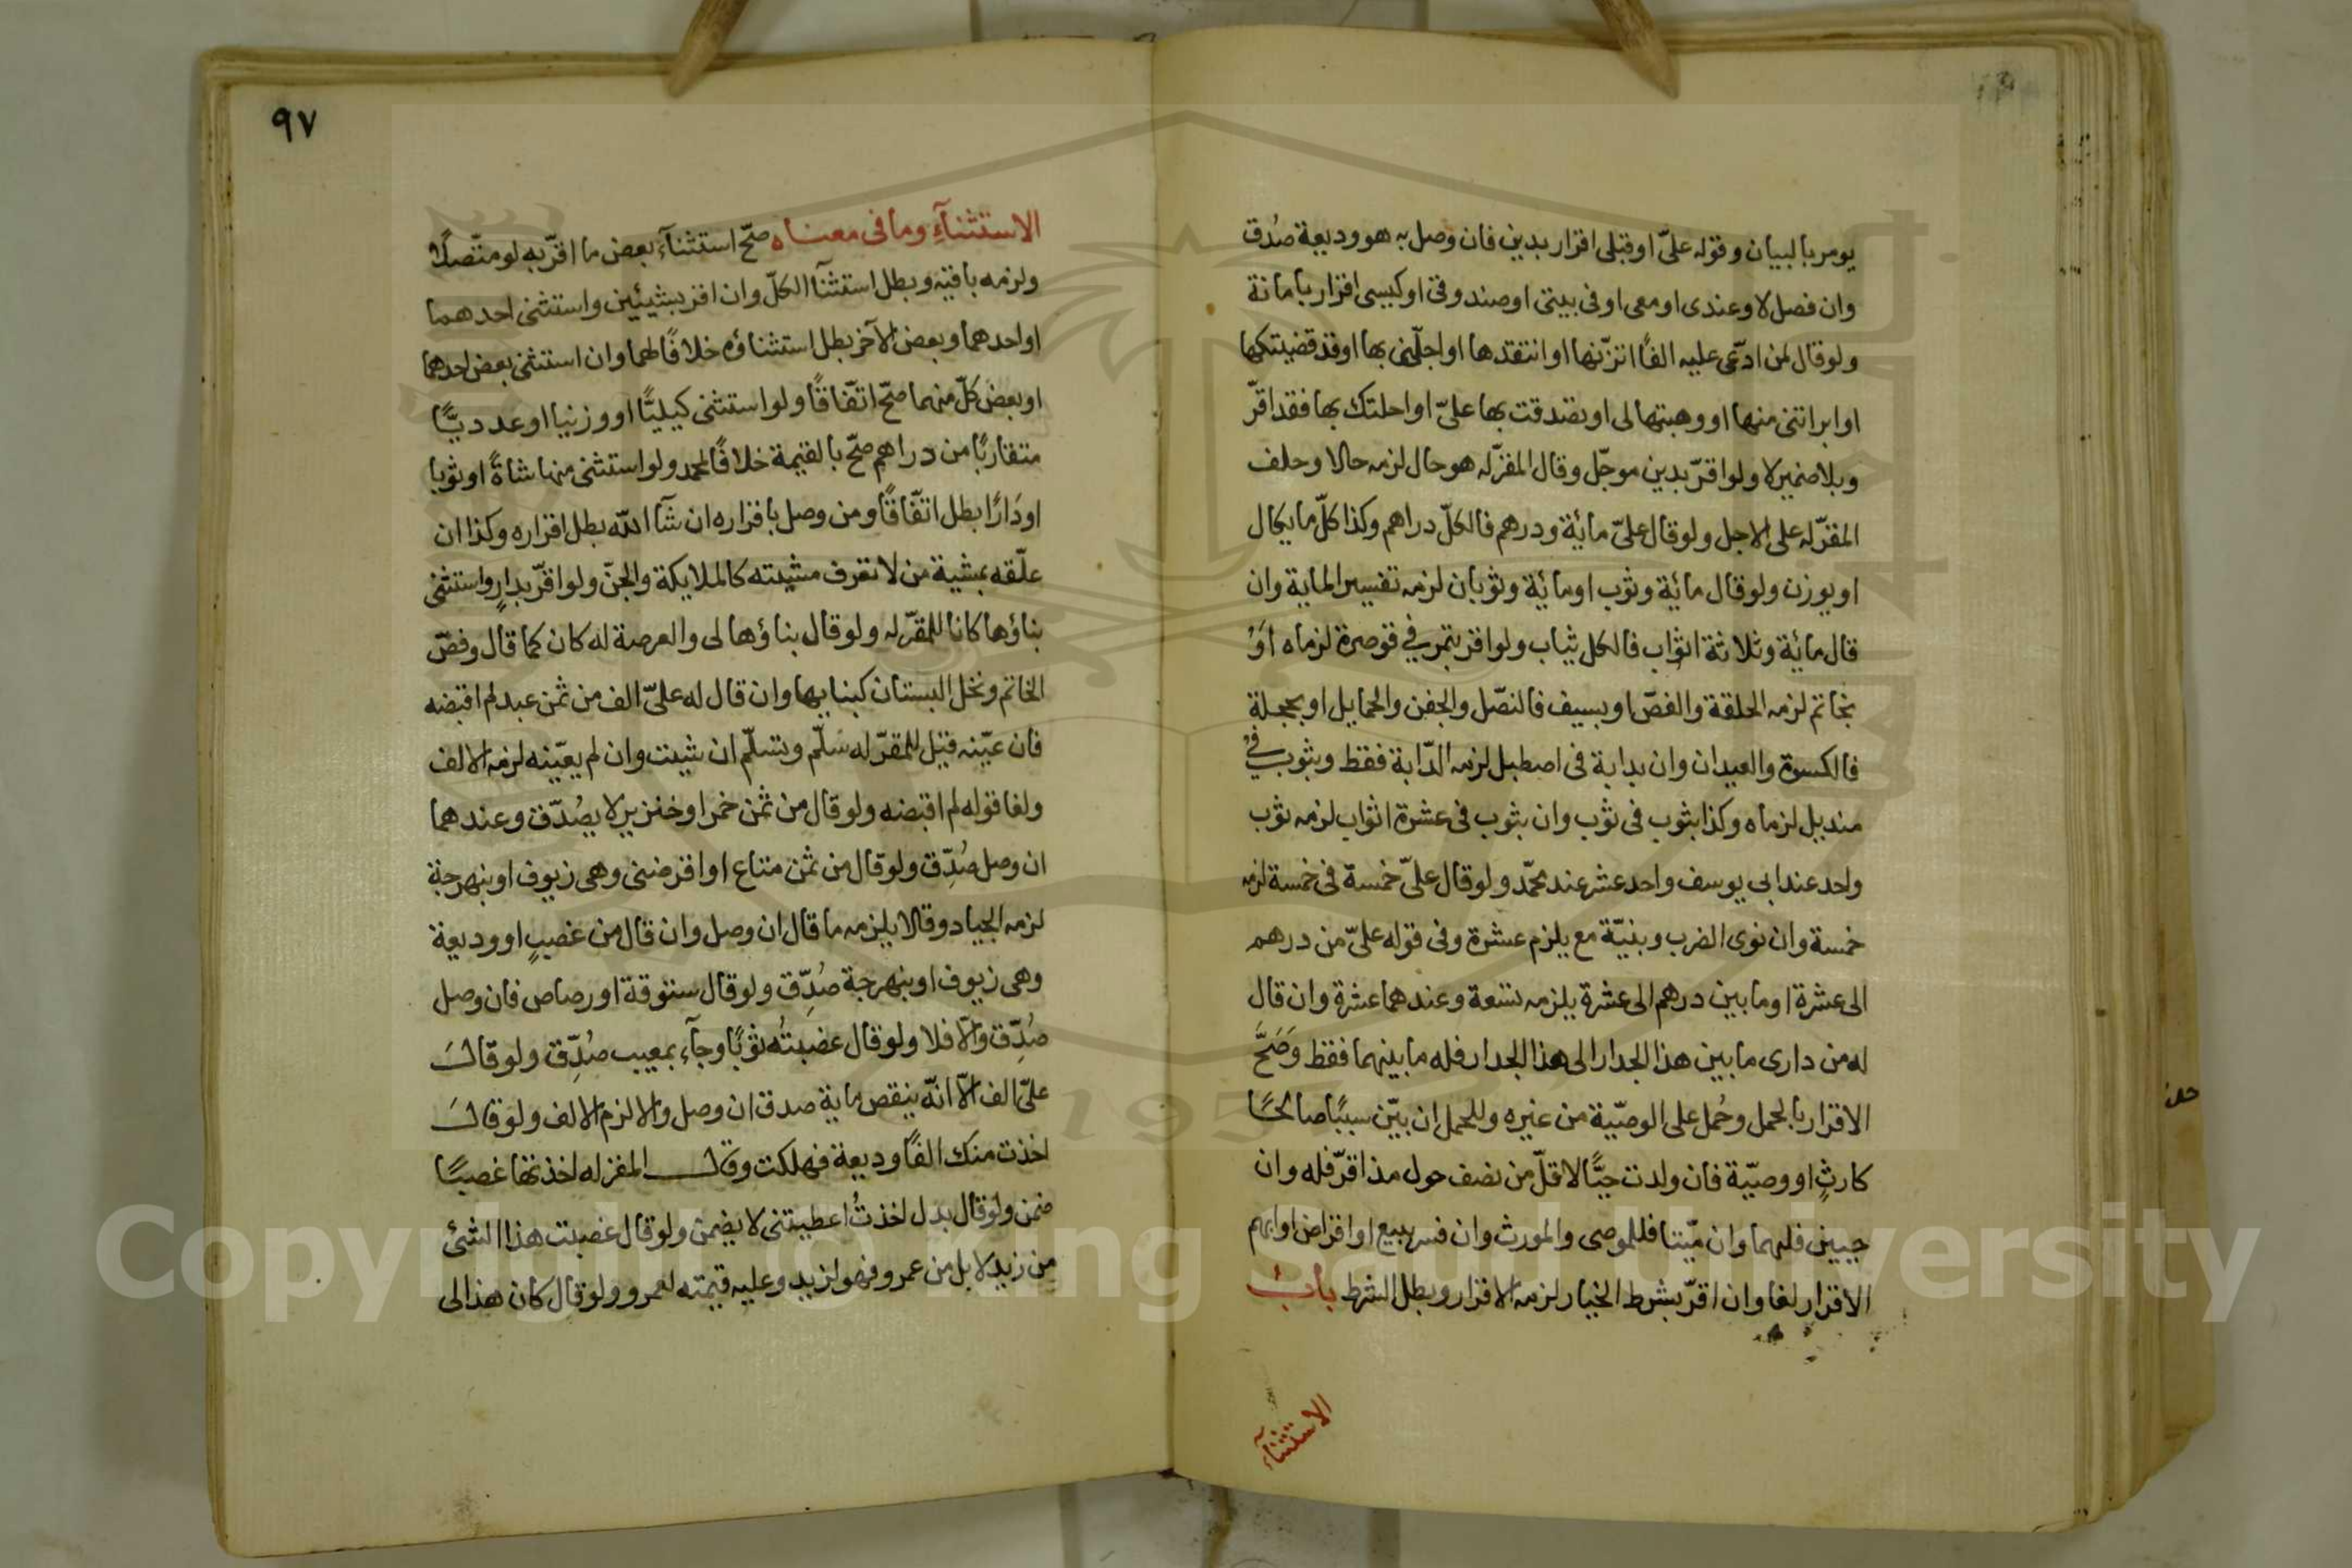 يومر بالبيان وقوله علىّ او قبلى اقرار بدين فان وصل به هو وديعة صُدق
وان فصل لا وعندى او معى او فى بيتى او صندوقى او كيسى اقرار بامانة
ولو قال لمن ادّعى عليه الفًا اتزنها او انتقدها او اجلّنى بها او قد قضيتكها
او ابراتنى منها او وهبتها لى او تصدقت بها علىّ او احلتك بها فقد اقرّ
وبلا ضمير لا ولو اقرّ بدين موجّل وقال المقرّ له هو حال لزمه حالا وحلف
المقرّ له على الاجل ولو قال علىّ مائة ودرهم فالكلّ دراهم وكذا كلّ ما يكال
او يوزن ولو قال مائة وثوب او مائة وثوبان لزمه تفسير الماية وان
قال مائة وثلاثة اثواب فالكل ثياب ولو اقر بتمر في قوصرة لزماه اَوْ
بخاتم لزمه الحلقة والفصّ او بسيف فالنصّل والجفن والحمايل او بحجلة
فالكسوة والعيدان وان بدابة فى اصطبل لزمه الدّابة فقط وبثوب في
منديل لزماه وكذا بثوب فى ثوب وان بثوب فى عشرة اثواب لزمه ثوب
واحد عند ابى يوسف واحد عشر عند محمّد ولو قال علىّ خمسة فى خمسة لزمه
خمسة وان نوى الضرب وبنيّة مع يلزم عشرة وفى قوله علىّ من درهم
الى عشرة او ما بين درهم الى عشرة يلزمه تسعة وعندهما عشرة وان قال
له من دارى ما بين هذا الجدار الى هذا الجدار فله ما بينهما فقط وَصَحَّ
الاقرار بالحمل وحُمل على الوصّية من غيره وللحمل ان بيّن سببًا صالحًا
كارثٍ او وصيّة فان ولدت حيًّا لاقلّ من نصف حول مذ اقرّ فله وان
حيين فلهما وان ميّتا فللموصى والمورث وان فسر ببيع او اقراض او ابهم
الاقرار لغا وان اقرّ بشرط الخيار لزمه الاقرار وبطل الشرط بابُ
الاستثناء
٩٧
الاستثنآءِ وما فى معناه صحّ استثنآء بعض ما اقرّ به لو متّصلًا
ولزمه باقيه وبطل استثنآ الكلّ وان اقر بشيئين واستثنى احدهما
او احدهما وبعض الآخر بطل استثناؤه خلافًا لهما وان استثنى بعض احدهما
او بعض كلّ منهما صحّ اتّفاقًا ولو استثنى كيليًّا او وزنيا او عدديًّا
متقاربًا من دراهم صحّ بالقيمة خلافًا لمحمد ولو استثنى منها شاةً او ثوبا
او دَارًا بطل اتّفاقًا ومن وصل باقراره ان شآ الله بطل اقراره وكذا ان
علّقه بمشية من لا تعرف مشيته كالملايكة والجنّ ولو اقرّ بدارٍ واستثنى
بناؤها كانا للمقرّ له ولو قال بناؤها لى والعرصة له كان كما قال وفصّ
الخاتم ونخل البستان كبنايها وان قال له علىّ الف من ثمن عبد لم اقبضه
فان عيّنه قيل للمقرّ له سَلّم وتسلّم ان شيت وان لم يعيّنه لزمه الالف
ولغا قوله لم اقبضه ولو قال من ثمن خمر او خنزير لا يصُدّق وعندهما
ان وصل صُدِّق ولو قال من ثمن متاع او اقرضنى وهى زيوف او بنهرجة
لزمه الجياد وقالا يلزمه ما قال ان وصل وان قال من غصبٍ او وديعة
وهى زيوف او بنهرجة صُدِّق ولو قال ستوقة او رصاص فان وصل
صُدِّق والّا فلا ولو قال غصبتُه ثوبًا وجآء بمعيب صُدِّق ولو قال
علىّ الف الّا انّه ينقص ماية صدق ان وصل والا لزم الالف ولو قال
اخذت منك الفًا وديعة فهلكت وقال المقر له اخذتها غصبًا
ضمن ولو قال بدل اخذتُ اعطيتنى لا يضمن ولو قال غصبت هذا الشئ
من زيدٍ لا بل من عمرو فهو لزيد وعليه قيمته لعمرو ولو قال كان هذا لى
Copyright (c) King Saud University